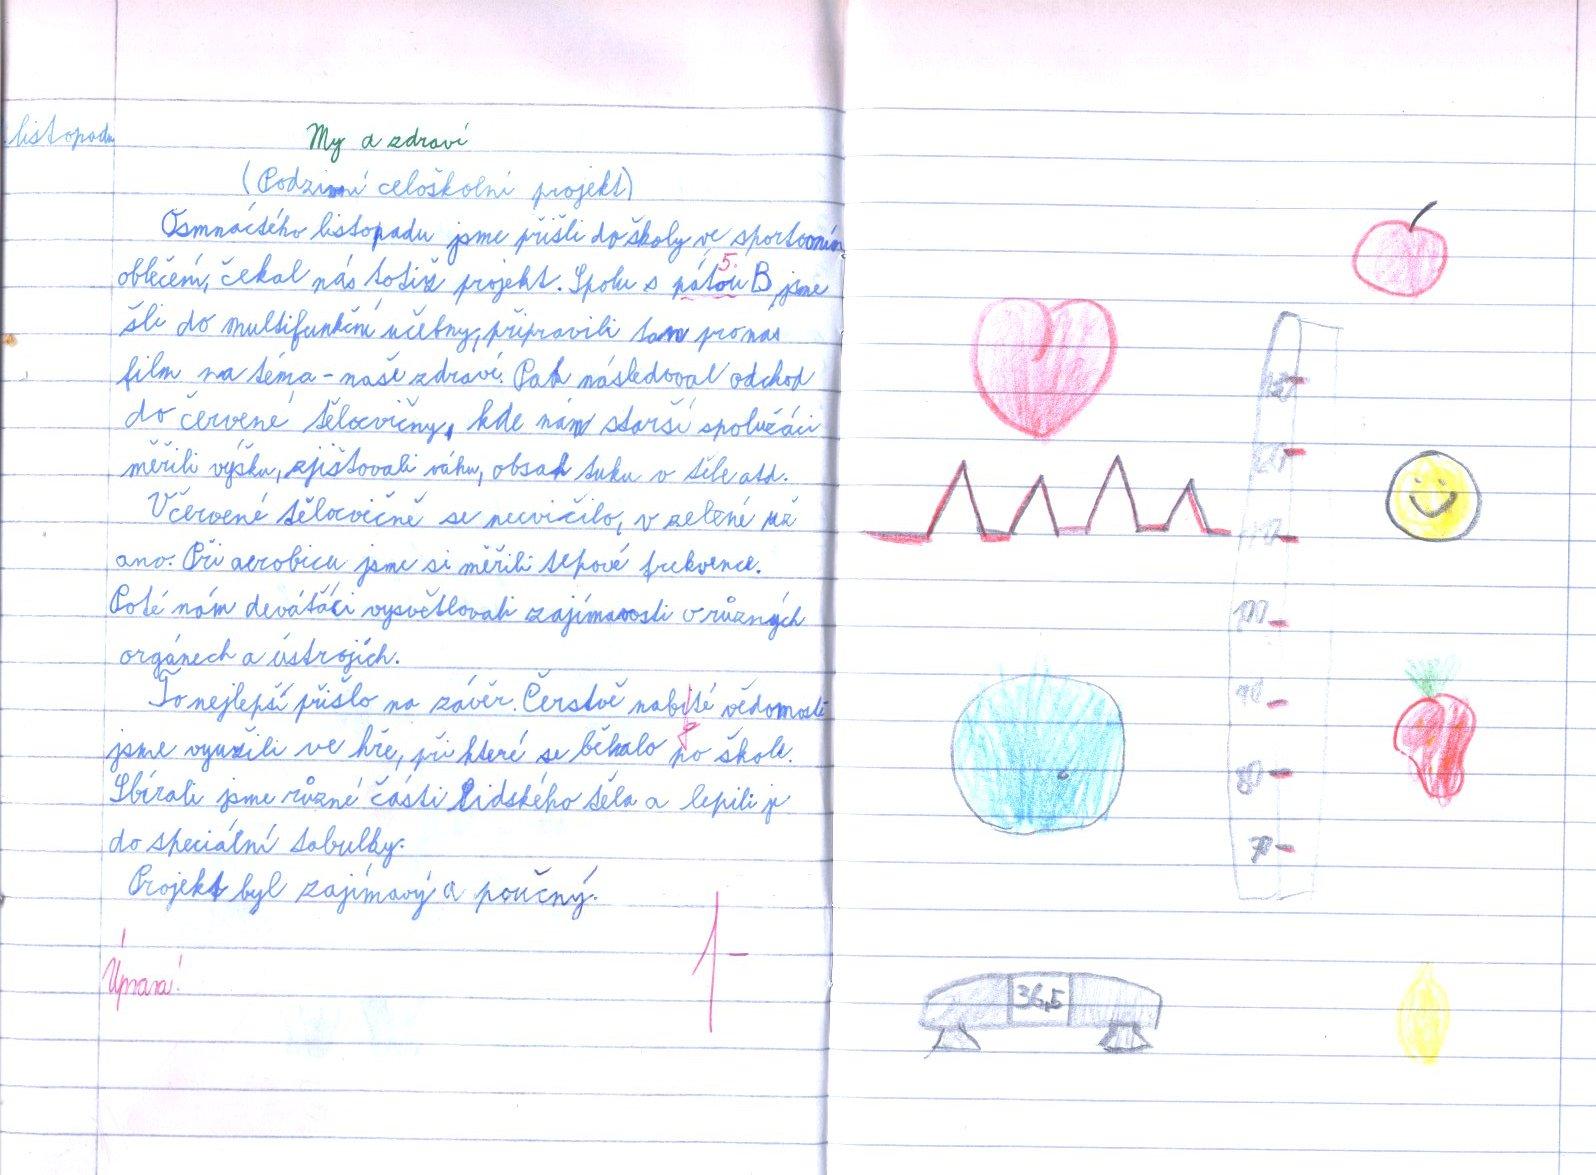 listopadu
My a zdraví
(Podzimní celoškolní projekt)
Osmnáctého listopadu jsme přišli do školy ve sportovním
oblečení, čekal nás totiž projekt. Spolu s pátou B jsme
5.
šli do multifunkční učebny, připravili tam pro nás
film na téma - naše zdraví. Pak následoval odchod
do červené tělocvičny, kde nám starší spolužáci
měřili výšku, zjišťovali váhu, obsah tuku v těle atd.
V červené tělocvičně se necvičilo, v zelené už
ano. Při aerobicu jsme si měřili tepové frekvence.
Poté nám deváťáci vysvětlovali zajímavosti o různých
orgánech a ústrojích.
To nejlepší přišlo na závěr. Čerstvě nabité vědomosti
jsme využili ve hře, při které se běhalo po škole.
Sbírali jsme různé části lidského těla a lepili je
do speciální tabulky.
Projekt byl zajímavý a poučný.
1-
Úprava!
90
80
70
36,5